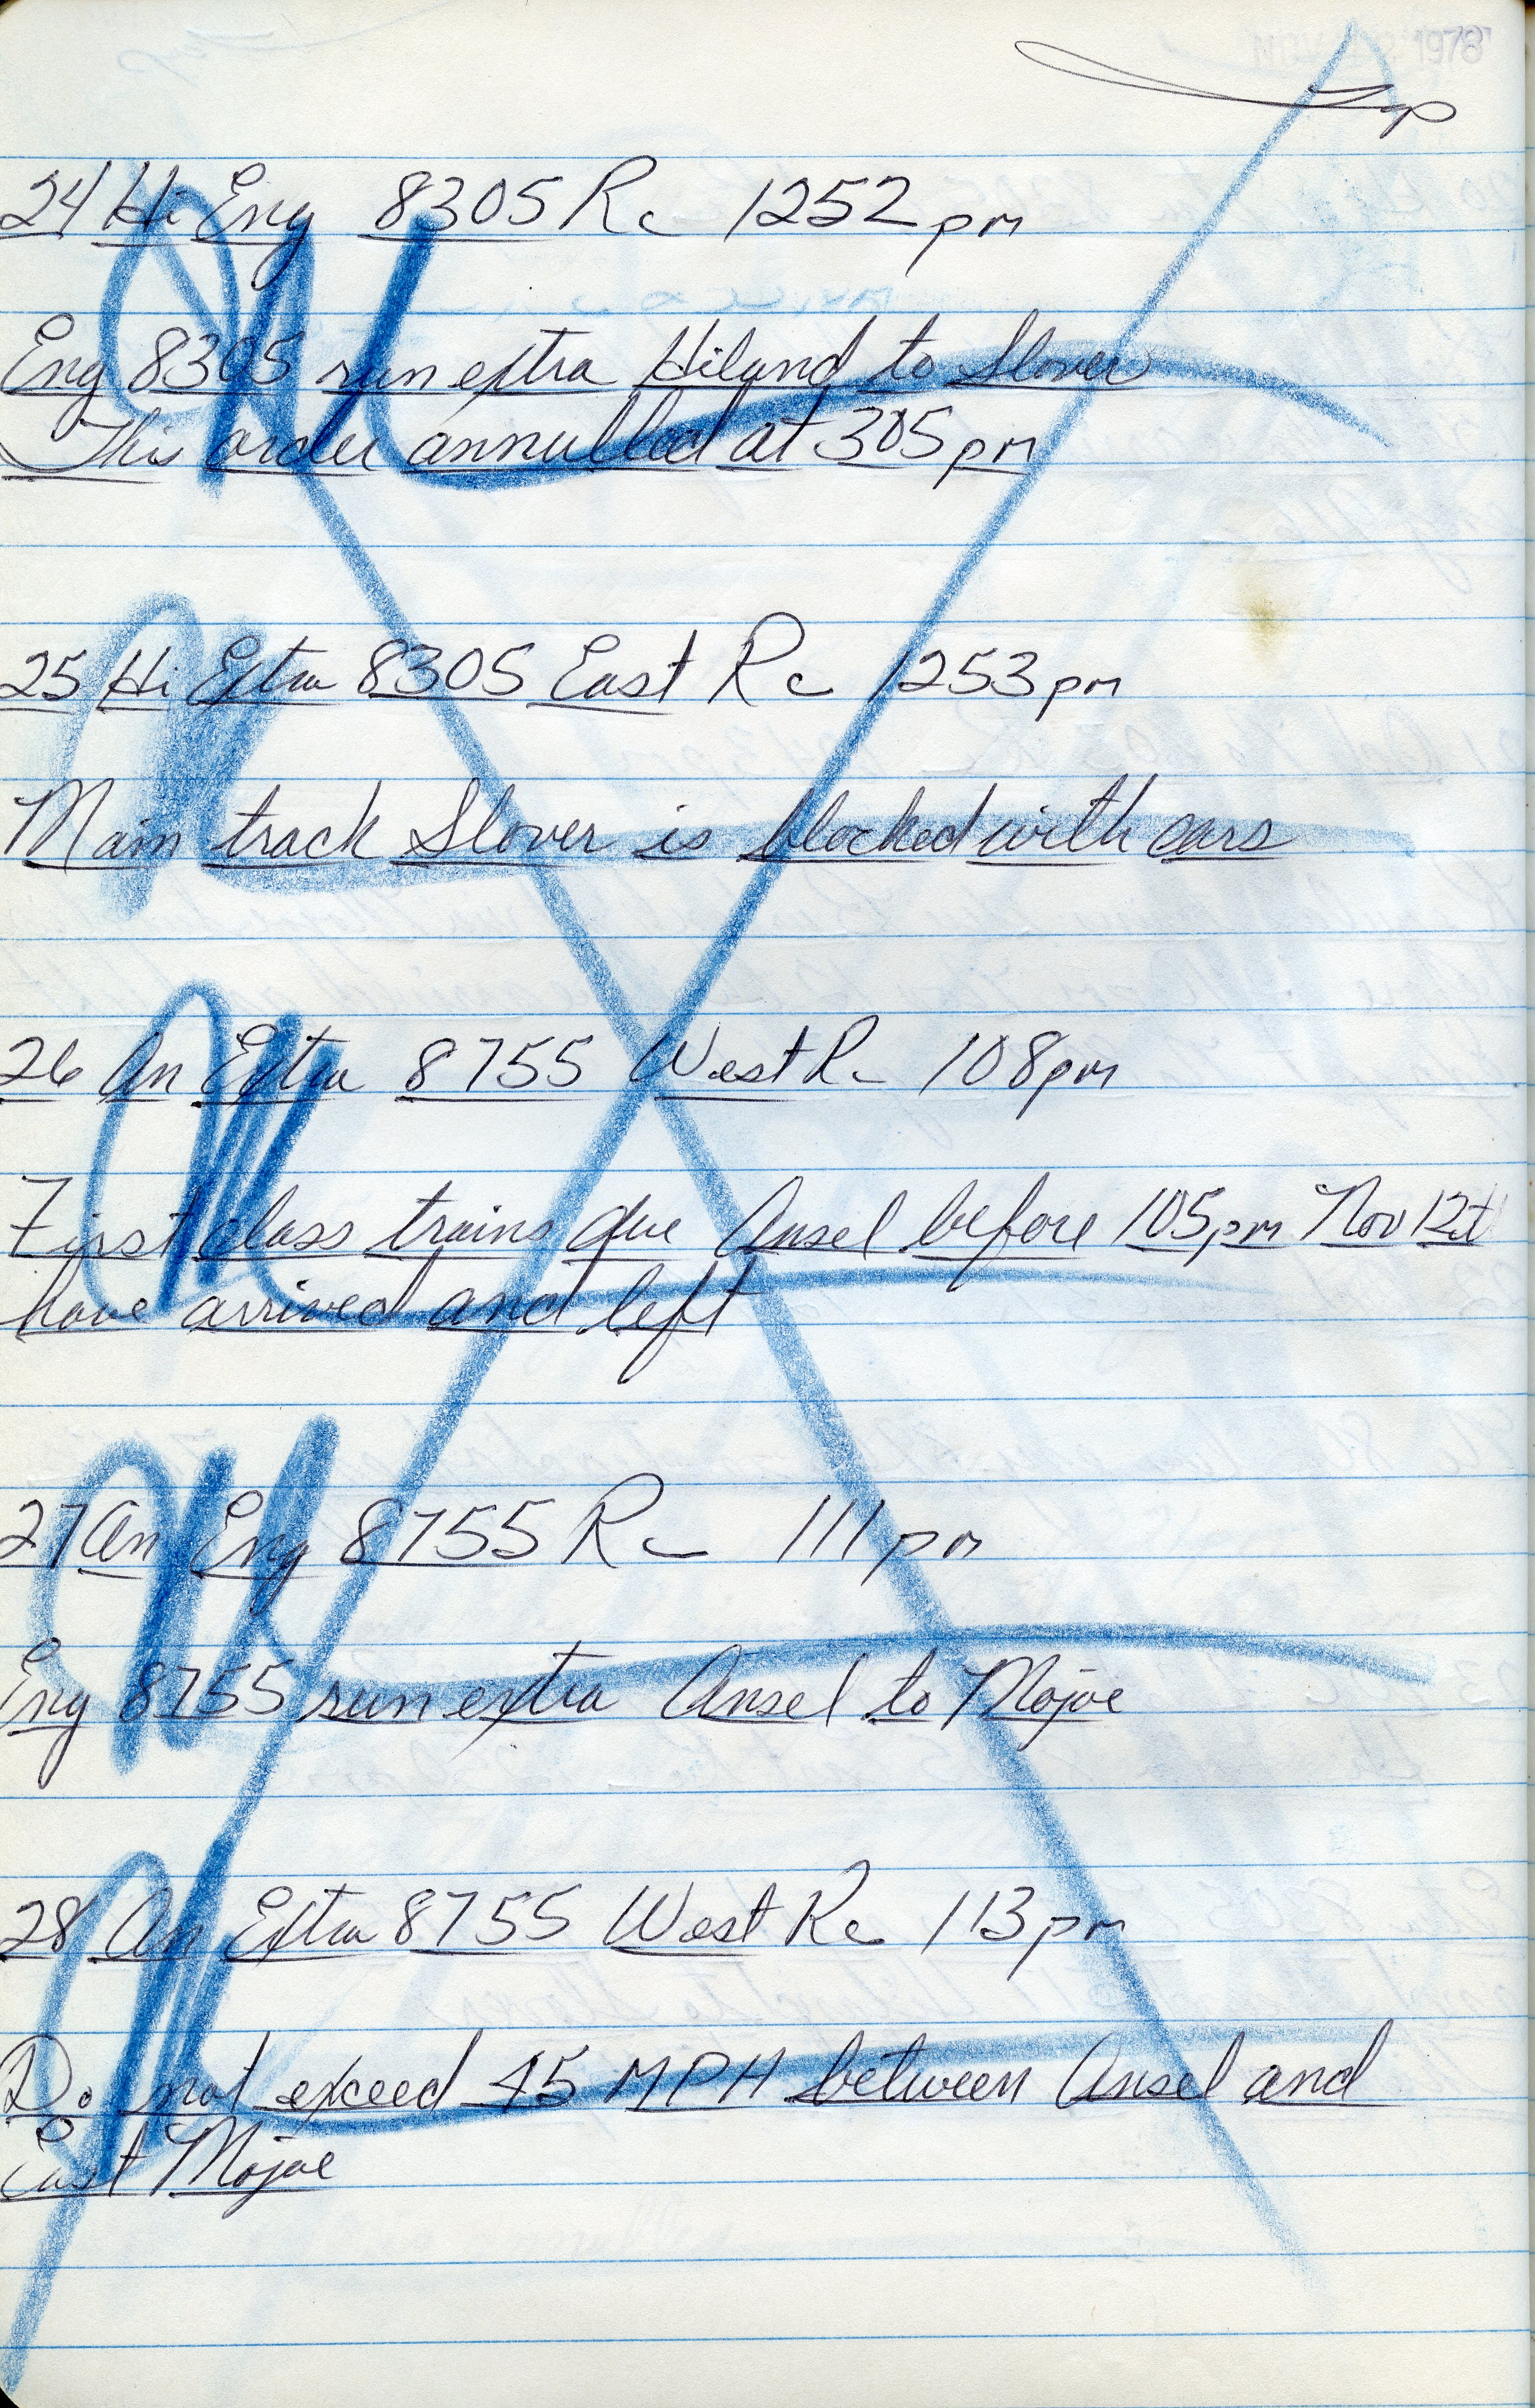 1978
24 Hi Eng 8305 Rc 1252pm
Eng 8305 run extra Hiland to Slover
This order annulled at 305pm
25 Hi Extra 8305 East Rc 1253pm
Main track Slover is blocked with cars
26 An Extra 8755 West Rc 108pm
First class trains due Ansel before 105pm Nov 12th
have arrived and left
27 An Eng 8755 Rc 111pm
Eng 8755 run extra Ansel to Mojoe
28 An Extra 8755 West Rc 113pm
Do not exceed 45 MPH between Ansel and
East Mojoe